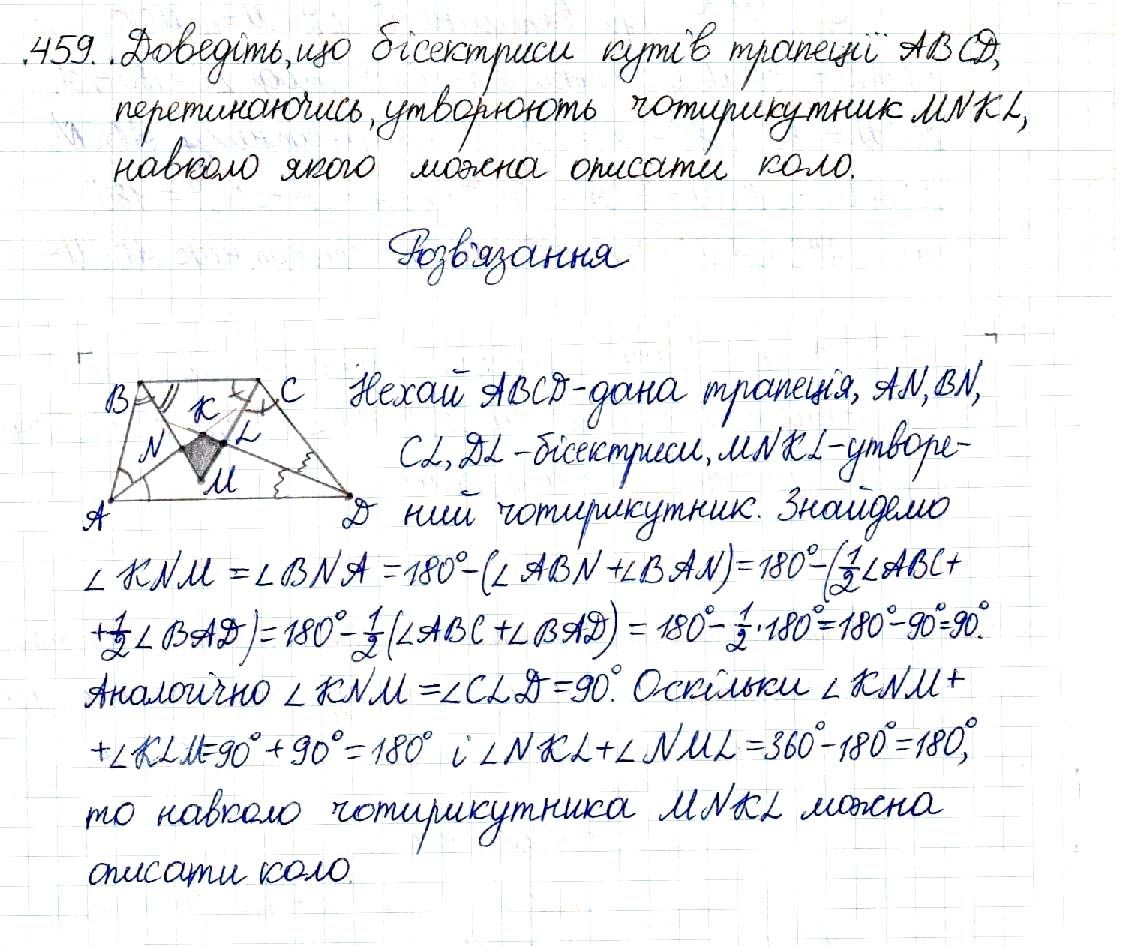 .459. Доведіть, що бісектриси кутів трапеції ABCD,
перетинаючись, утворюють чотирикутник MNKL,
навколо якого можна описати коло.
Розв'язання
B C K N L M A D
Нехай ABCD - дана трапеція, AN, BN,
CL, DL - бісектриси, MNKL - утворе-
ний чотирикутник. Знайдемо
∠KNM = ∠BNA = 180° - (∠ABN + ∠BAN) = 180° - (1/2 ∠ABC +
+ 1/2 ∠BAD) = 180° - 1/2 (∠ABC + ∠BAD) = 180° - 1/2 · 180° = 180° - 90° = 90°.
Аналогічно ∠KNM = ∠CLD = 90°. Оскільки ∠KNM +
+ ∠KLM = 90° + 90° = 180° і ∠NKL + ∠NML = 360° - 180° = 180°,
то навколо чотирикутника MNKL можна
описати коло.